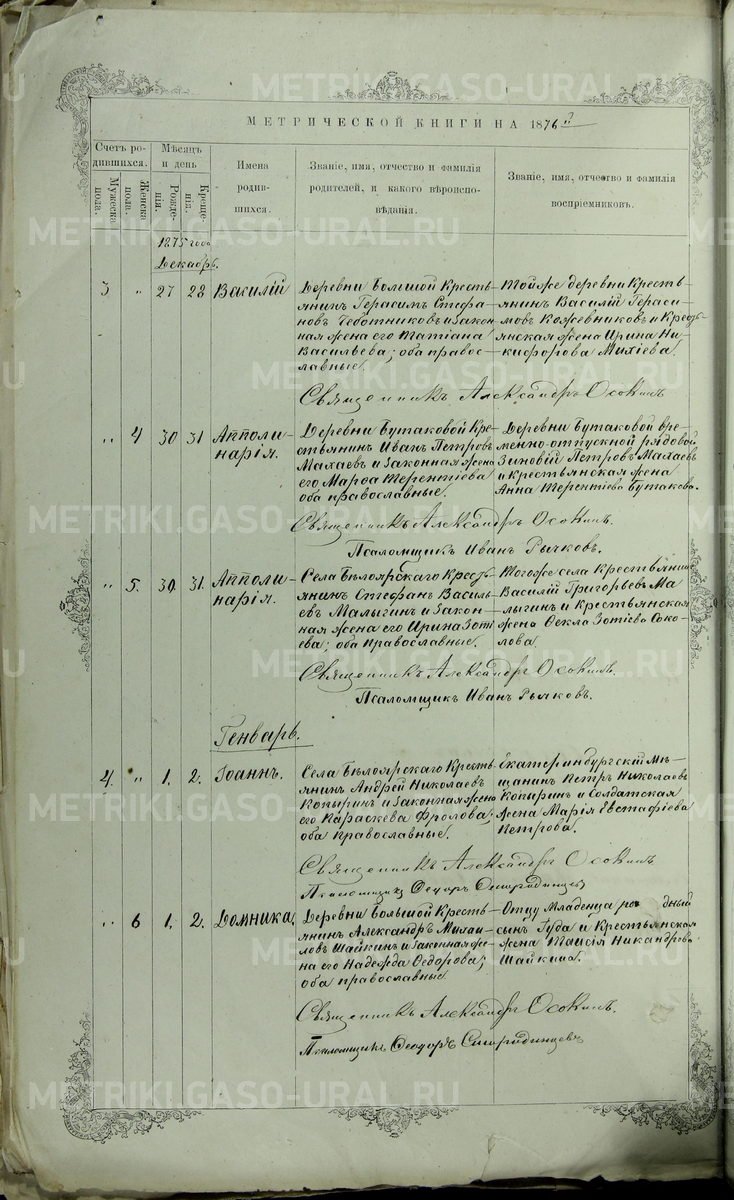 МЕТРИЧЕСКОЙ КНИГИ НА 1876 г
Счетъ ро-
дившихся.
Мужеска
пола.
Женска
пола.
Мѣсяцъ
и день
Рожде-
нія.
Креще-
нія.
Имена
родив-
шихся.
Званіе, имя, отчество и фамилія
родителей, и какого вѣроиспо-
вѣданія.
Званіе, имя, отчество и фамилія
воспріемниковъ.
1875 года
Декабрь.
3 " 27 28 Василій
Деревни Большой Кресть-
янинъ Герасимъ Стефа-
новъ Чеботниковъ и закон
ная жена его Татіана
Васильева; оба правос-
лавные.
Тойже деревни Кресть-
янинъ Василій Гераси-
мовъ Кожевниковъ и Кресть-
янская жена Ирина Ни-
кифорова Михіева.
Священникъ Александръ Осокинъ
" 4 30 31 Апполи-
нарія.
Деревни Бутаковой Кре-
стьянинъ Иванъ Петровъ
Махаевъ и законная жена
его Марѳа Терентіева
оба православные.
Деревни Бутаковой вре-
менно-отпускной рядовой
Зиновій Петровъ Махаевъ
и Крестьянская жена
Анна Терентіева Бутакова.
Священникъ Александръ Осокинъ.
Псаломщикъ Иванъ Рычковъ.
" 5. 30. 31. Апполи-
нарія.
Села Бѣлоярскаго Кресть-
янинъ Стефанъ Василь-
евъ Малыгинъ и закон-
ная жена его Ирина Зоті
ева; оба православные.
Тогоже села Крестьянинъ
Василій Григорьевъ Ма
лыгинъ и Крестьянская
жена Ѳекла Зотіева Соко-
лова.
Священникъ Александръ Осокинъ.
Псаломщикъ Иванъ Рычковъ.
Генварь.
4. " 1. 2. Іоаннъ.
Села Бѣлоярскаго Кресть-
янинъ Андрей Николаевъ
Копыринъ и законная жена
его Параскева Фролова;
оба православные.
Екатеринбургскій мѣ-
щанинъ Петръ Николаевъ
Копыринъ и Солдатская
жена Марія Евстафіева
Петрова.
Священникъ Александръ Осокинъ
Псаломщикъ Ѳедоръ Спиридинцевъ
" 6 1. 2. Домника.
Деревни Большой Кресть-
янинъ Александръ Михаи-
ловъ Шайкинъ и законная же-
на его Надежда Ѳедорова;
оба православные.
Отцу младенца родный
сынъ Іуда и Крестьянская
жена Таисія Никандрова
Шайкина.
Священникъ Александръ Осокинъ.
Псаломщикъ Ѳеодоръ Спиридинцевъ
METRIKI.GASO-URAL.RU